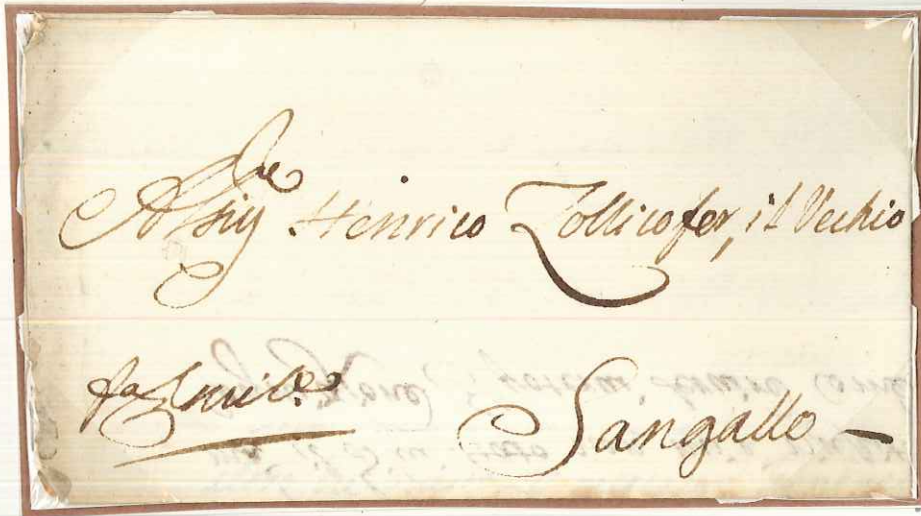 Al Sig.re Henrico Zollicofer, il Vechio
Sangallo —